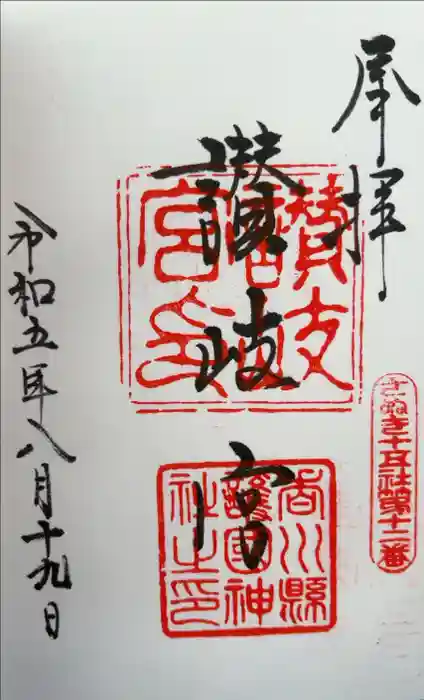 奉拝
さぬき十五社第十二番
讃岐宮
讃岐宮印
香川縣
護國神
社之印
令和五年八月十九日